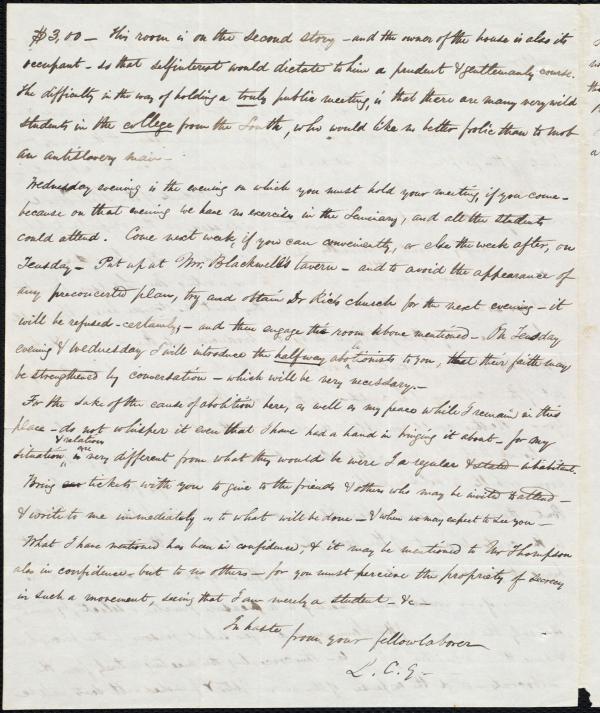 $3,00 — This room is on the second story — and the owner of the house is also its
occupant — so that selfinterest would dictate to him a prudent & gentlemanly course.
The difficulty in the way of holding a truly public meeting, is that there are many very wild
students in the college from the South, who would like no better frolic than to mob
an antislavery man —
Wednesday evening is the evening on which you must hold your meeting, if you come —
because on that evening we have no exercises in the Seminary, and all the students
could attend. Come next week, if you can conveniently, or else the week after, on
Teusday — Put up at Mr. Blackwell's tavern — and to avoid the appearance of
any preconcerted plan, try and obtain Dr Rice's church for the next evening — it
will be refused — certainly — and then engage this room above mentioned — On Teusday
evening & Wednesday I will introduce the halfway abolitionists to you, that their faith may
be strengthened by conversation — which will be very necessary. —
For the sake of the cause of abolition here, as well as my peace while I remain in this
place — do not whisper it even that I have had a hand in bringing it about — for my
situation & relations are very different from what they would be were I a regular & stated inhabitant.
Bring tickets with you to give to the friends & others who may be invited to attend —
& write to me immediately as to what will be done — & when we may expect to see you —
What I have mentioned has been in confidence, & it may be mentioned to Mr Thompson
also in confidence — but to no others — for you must perceive the propriety of secrecy
in such a movement, seeing that I am merely a student — &c —
In haste, from your fellowlaborer
L. C. G—